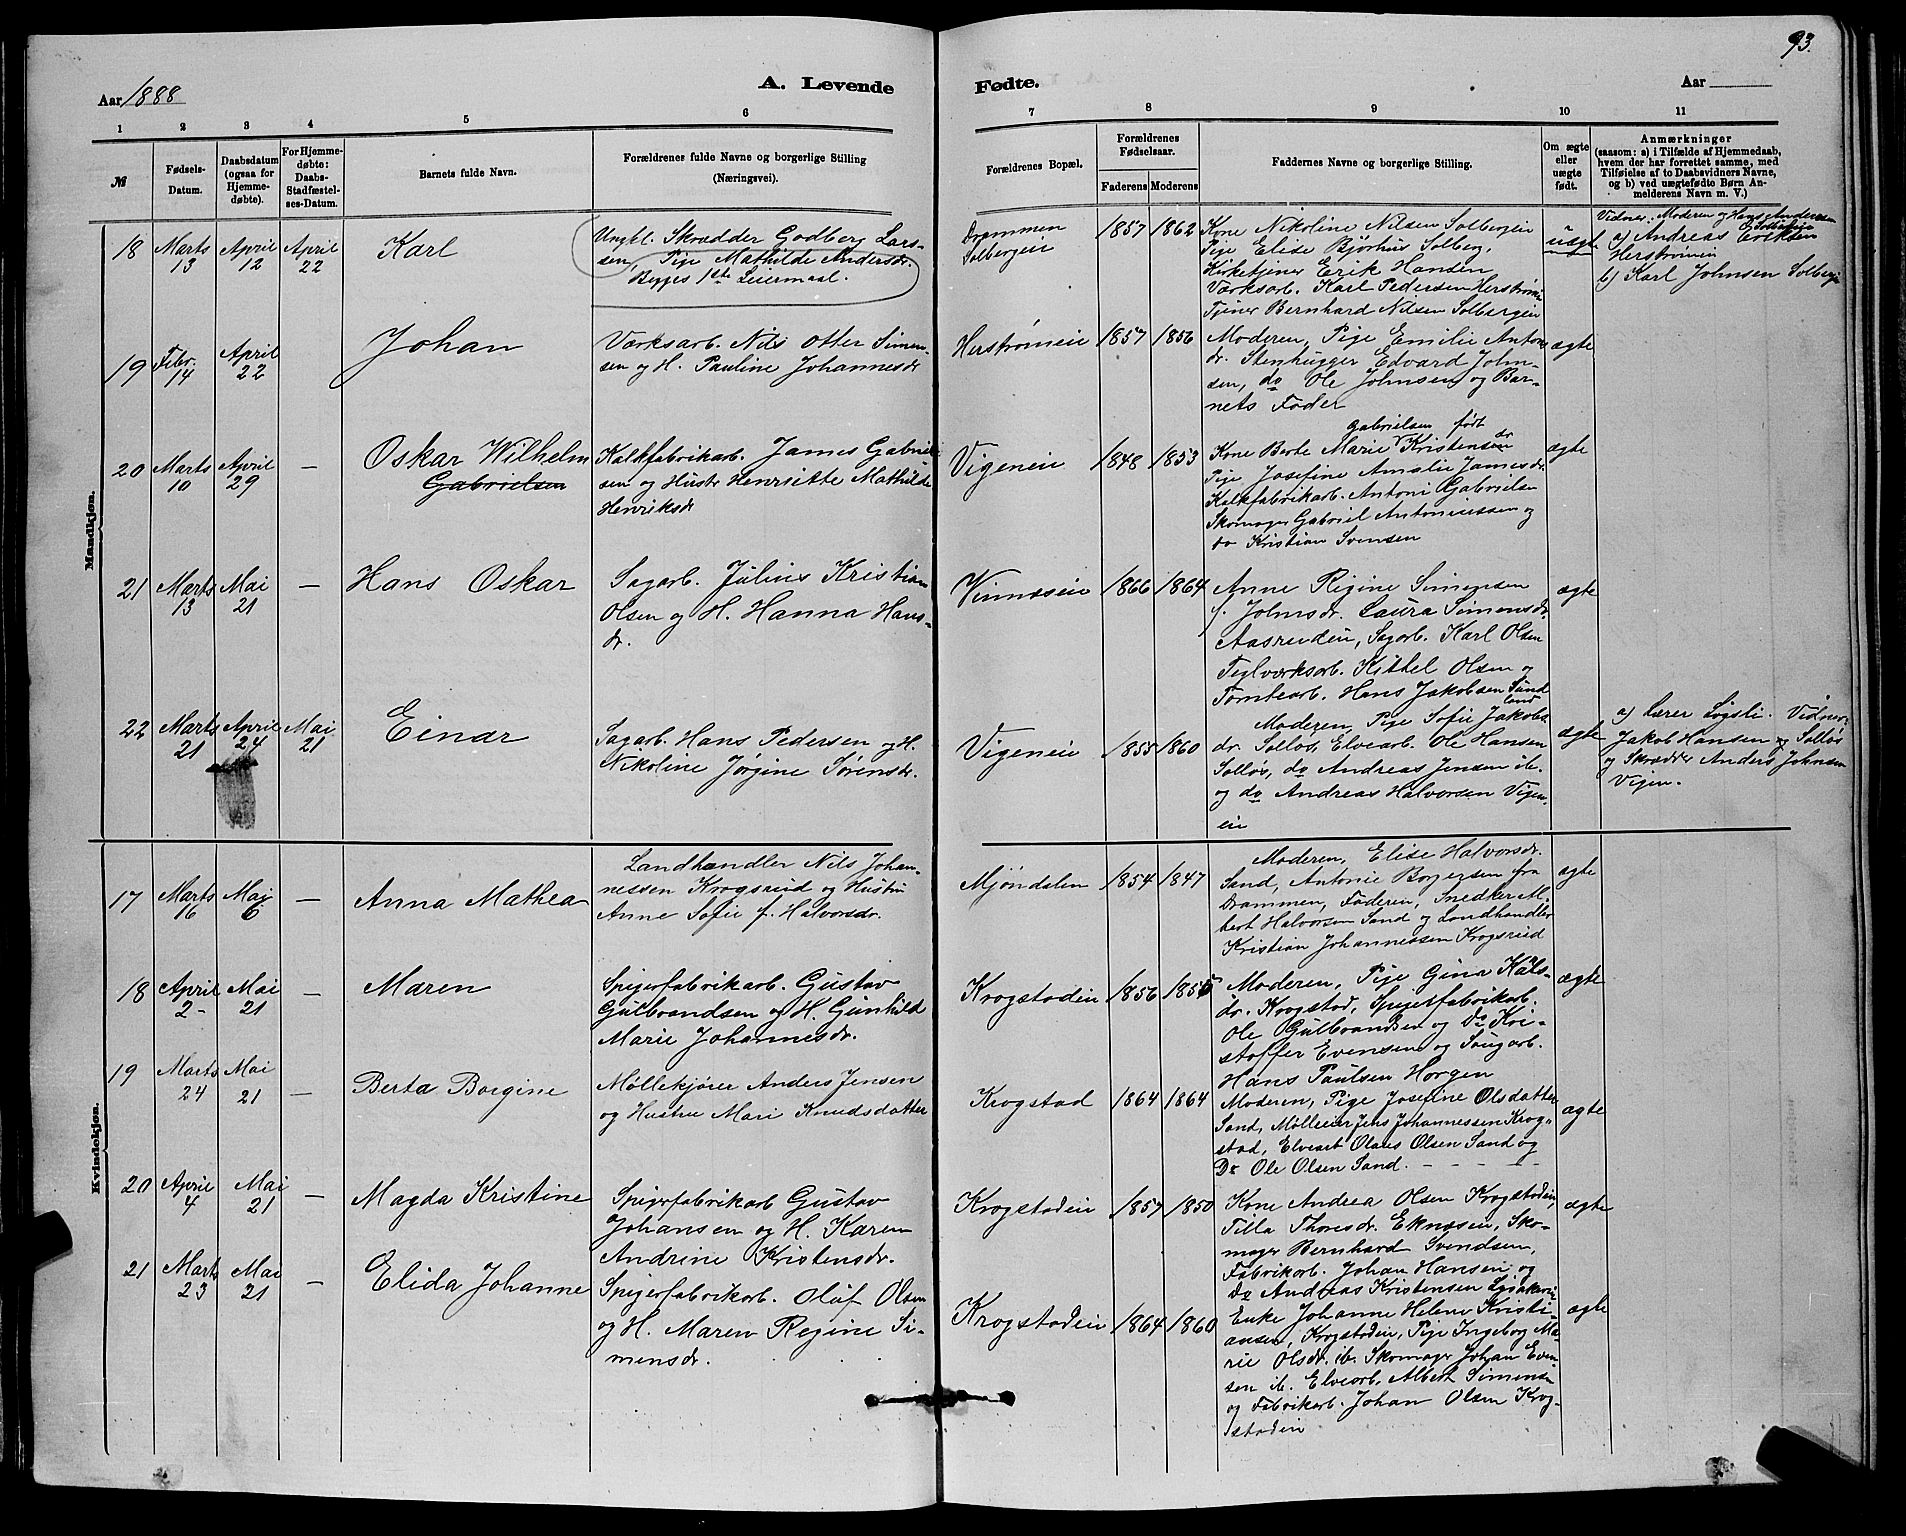 93.
Aar 1888
A. Levende
Fødte.
Aar
1 2 3 4 5 6
7 8 9 10 11
№
Fødsels-
Datum.
Daabsdatum
(ogsaa for
Hjemme-
døbte).
For Hjemme-
døbte:
Daabs-
Stadfæstel-
ses-Datum.
Barnets fulde Navn.
Forældrenes fulde Navne og borgerlige Stilling
(Næringsvei).
Forældrenes Bopæl.
Forældrenes
Fødselsaar.
Faderens Moderens
Faddernes Navne og borgerlige Stilling.
Om ægte
eller
uægte
født.
Anmærkninger
(saasom: a) i Tilfælde af Hjemmedaab,
hvem der har forrettet samme, med
Tilføielse af to Daabsvidners Navne,
og b) ved uægtefødte Børn An-
melderens Navn m. V.)
Mandkjøn.
18
Marts
13
April
12
April
22
Karl
Ungkl. Skrædder Godberg Lars-
sen, Pige Mathilde Andersdr.
Begges 1ste Leiermaal.
Drammen
Solbergeie
1857 1862
Kone Nikoline Nilsen Solbergeie
Pige Elise Bjørhus Solberg,
Kirketjener Erik Hansen
Værksarb. Karl Pedersen Herstrømei
Tjener Bernhard Nilsen Solbergeie
uægte
Vidner: Moderen og Hans Andersen
Solbergeie
a) Andreas Eriksen
Herstrømeie
b) Karl Johnsen Solberg
19
Febr.
14
April
22
Johan
Værksarb. Nils Otter Simen-
sen og H. Pauline Johannesdr
Herstrømeie
1857 1856
Moderen, Pige Emilie Anton
dr. Stenhugger Edvard John-
sen, do Ole Johnsen og Bar-
nets Fader
ægte
20
Marts
10
April
29
—
Oskar Wilhelm
Gabrielsen
Kalkfabrikarb. James Gabriel
sen og Hustr Henriette Mathilde
Henriksdr
Vigeneie
1848 1853
Gabrielsen født
Kone Berte Marie Kristensdr
Pige Josefine Amalie Jamesdr.
Kalkfabrikarb. Antoni Gabrielsen
Skomager Gabriel Antoniussen og
do Kristian Svensen
ægte
21
Marts
13
Mai
21
—
Hans Oskar
Sagarb. Julius Kristian
Olsen og H. Hanna Hans-
dr.
Vinnæseie
1866 1864
Anne Rigine Simensen
f. Johnsdr. Laura Simensdr.
Aasrudeie, Sagarb. Karl Olsen
Teglværksarb. Kittel Olsen og
Tomtearb. Hans Jakobsen Sund
land
ægte
22
Marts
21
April
24
Mai
21
Einar
Sagarb. Hans Pedersen og H.
Nikoline Jørgine Sørensdr.
Vigeneie
1855 1860
Moderen, Pige Sofie Jakobs
dr. Solløs, Elvearb. Ole Hansen
Solløs, do Andreas Jensen ib.
og do Andreas Halvorsen Vigen-
eie
ægte
a) Lærer Løgsli. Vidner:
Jakob Hansen og Solløs
og Skrædder Anders Johnsen
Vigen.
Kvindekjøn.
17
Marts
16
Mai
6
—
Anna Mathea
Landhandler Nils Johan-
nessen Krogsrud og Hustru
Anne Sofie f. Halvorsdr.
Mjøndalen
1854 1847
Moderen, Elise Halvorsdr.
Sand, Antonie Borgersen fra
Drammen, Faderen, Snedker Al-
bert Halvorsen Sand og Landhandler
Kristian Johannessen Krogsrud
ægte
18
April
2
Mai
21
—
Maren
Spigerfabrikarb. Gustav
Gulbrandsen og H. Gunhild
Marie Johannesdr.
Krogstadeie
1856 1855
Moderen, Pige Gina Kåls-
dr. Krogstad, Spigerfabrikarb.
Ole Gulbrandsen og Do Kri-
stoffer Evensen og Saugarb.
Hans Paulsen Horgen
ægte
19
Marts
24
Mai
21
—
Berta Borgine
Møllekjører Anders Jensen
og Hustru Mari Knudsdatter
Krogstad
1864 1864
Moderen, Pige Josefine Olsdatter
Sand, Mølleeier Jens Johannessen Krog-
stad, Elvearb Olaus Olsen Sand og
Do Ole Olsen Sand. — — — —
ægte
20
April
4
Mai
21
—
Magda Kristine
Spigerfabrikarb Gustav
Johansen og H. Karen
Andrine Kristensdr.
Krogstadeie
1857 1850
Kone Andrea Olsen Krogstadeie,
Tilla Thoresdr. Eknæseie, Sko-
mager Bernhard Svendsen,
Fabrikarb. Johan Hansen og
Do Andreas Kristensen
ægte
21
Marts
23
Mai
21
—
Elida Johanne
Spigerfabrikarb. Oluf Olsen
og H. Maren Regine Si-
mensdr.
Krogstadeie
1864 1860
Enke Johanne Helene Kristi-
ansen, Krogstadeie, Pige Ingeborg Ma-
rie Olsdr. ib. Skomager Johan Even-
sen ib. Elvearb. Albert Simensen
og Fabrikarb. Johan Olsen Krog-
stadeie
ægte